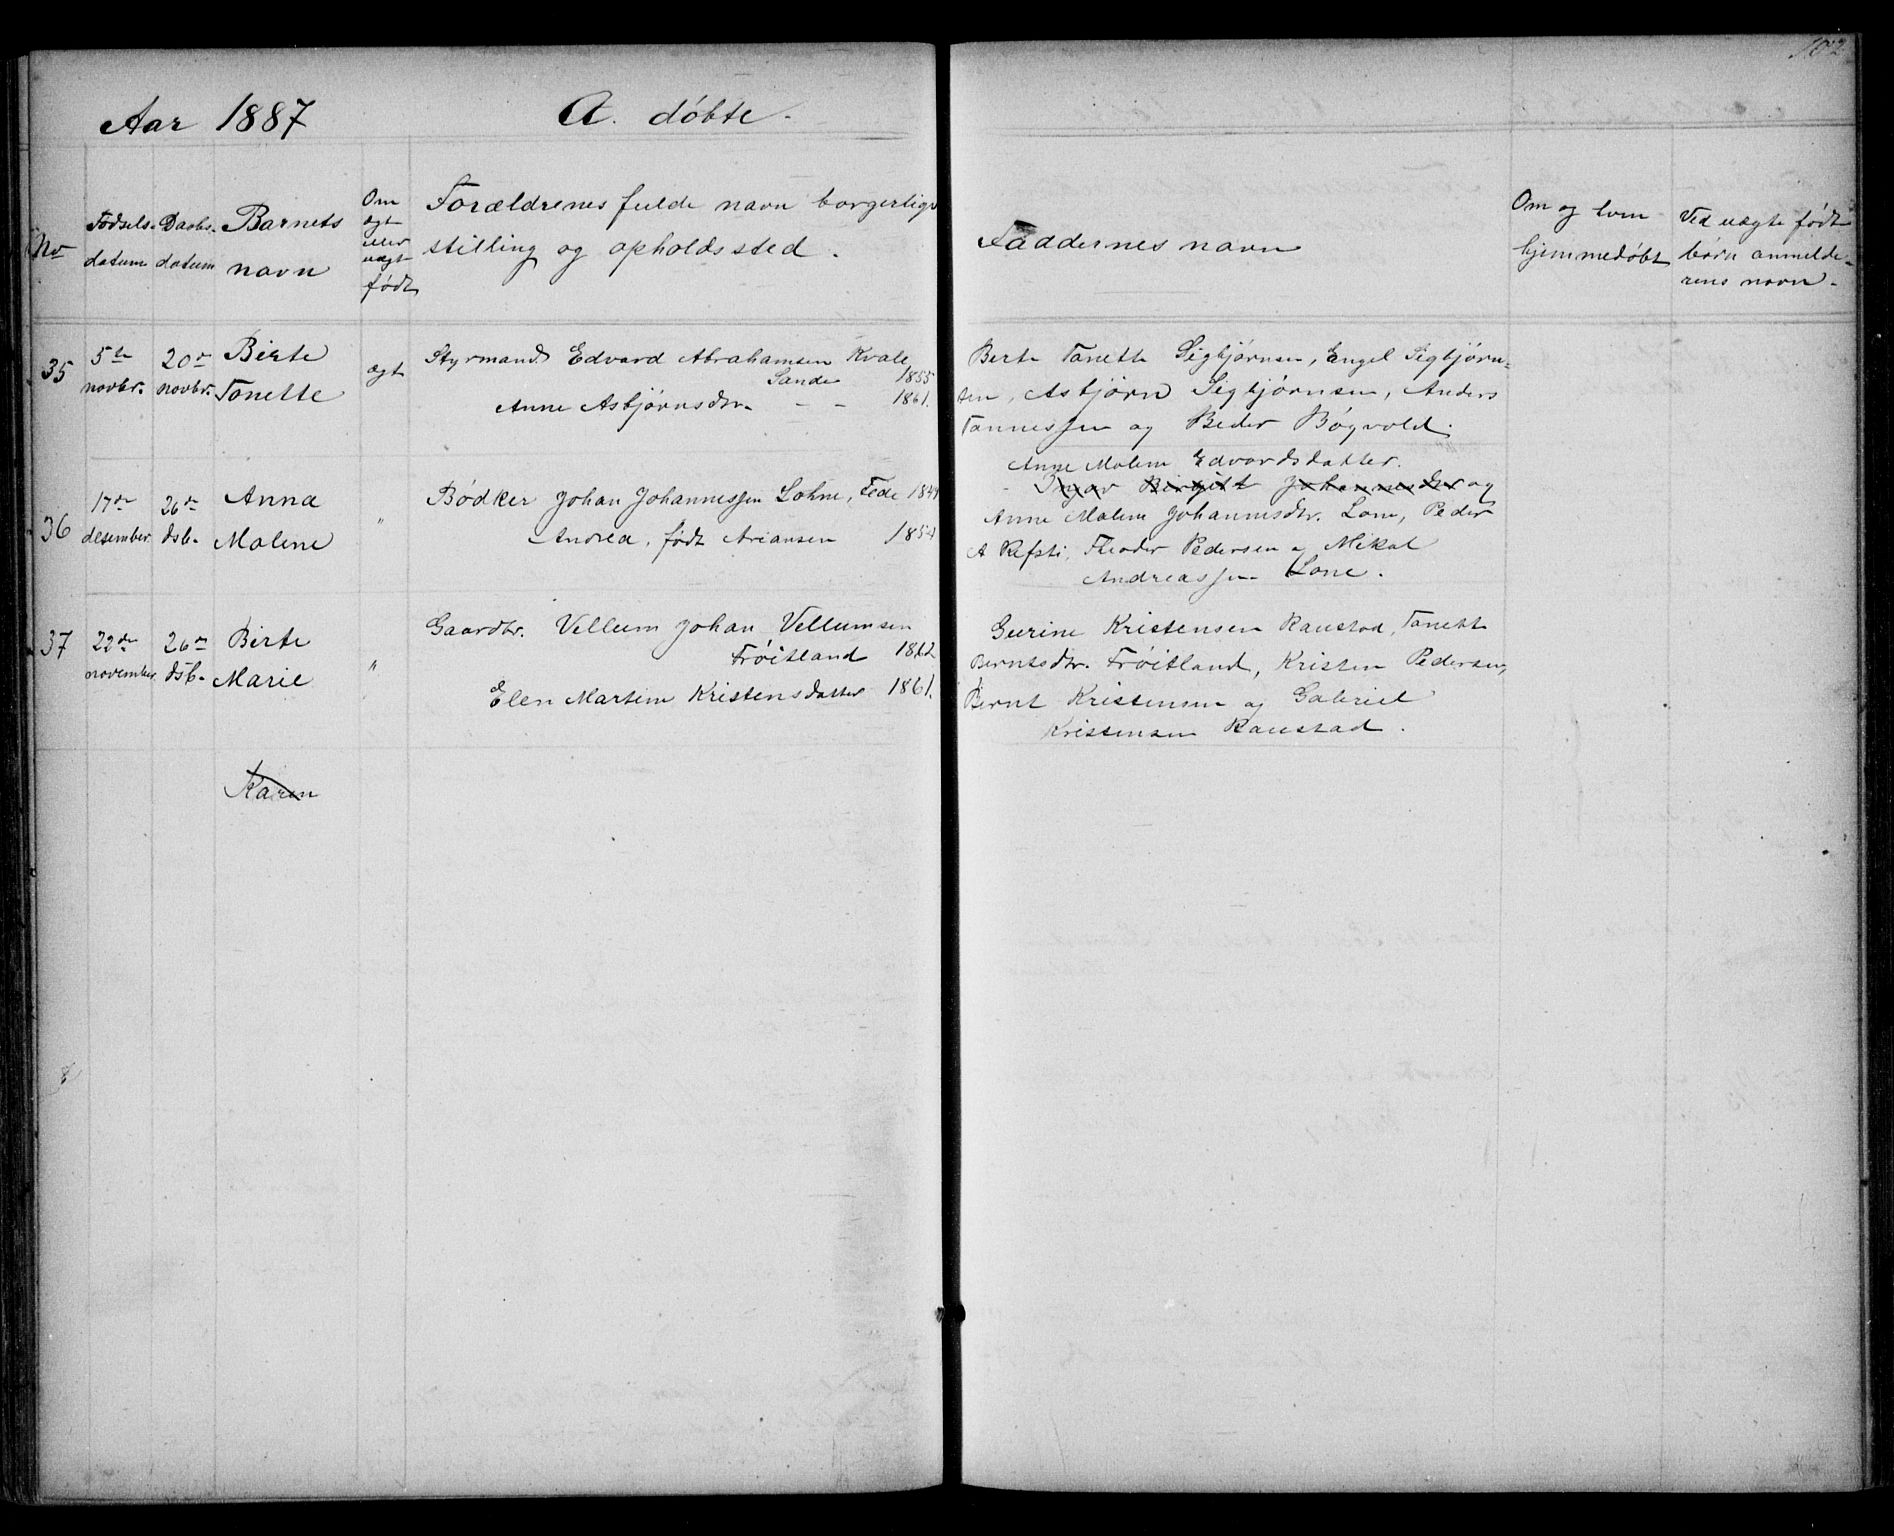 102
Aar 1887 A. døbte.
No
Fødsels-
datum
Daabs-
datum
Barnets
navn
Om
ægt
eller
uægt
født
Forældrenes fulde navn borgerlige
stilling og opholdssted.
Faddernes navn
Om og hvem
hjemmedøbt
Ved uægte født
børn anmelde-
rens navn.
35
5te
novbr.
20de
novbr.
Birte
Tonette
ægt
Styrmand Edvard Abrahamsen Kvale,
Sande 1855
Anne Asbjørnsdtr. - - 1861.
Berte Tanette Sigbjørnsen, Engel Sigbjørn-
sen, Asbjørn Sigbjørnsen, Anders
Tønnessen og Beder Bøgvold.
36
17de
desember.
26de
dsb.
Anna
Malene
"
Bødker Johan Johannessen Lohne, Fede 1849
Andrea, født Ariansen 1854
Anne Malene Edvardsdatter.
Birgitt Johannesdtr og
Anne Malene Johannesdtr. Lone, Peder
A Refsti, Theodor Pedersen og Mikal
Andreassen Lone.
37
22de
november.
26de
dsb.
Birte
Marie
"
Gaardbr. Vellum Johan Vellumsen
Frøitland 1862
Elen Martine Kristensdatter 1861.
Gurine Kristensen Raustad, Tanette
Berntsdtr. Frøitland, Kristen Pedersen,
Bernt Kristensen og Gabriel
Kristensen Raustad.
Karen